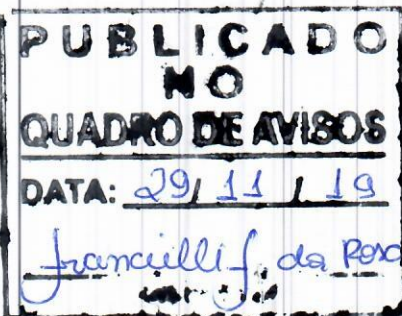 PUBLICADO
NO
QUADRO DE AVISOS
DATA: 29/ 11 / 19
f. da Rosa